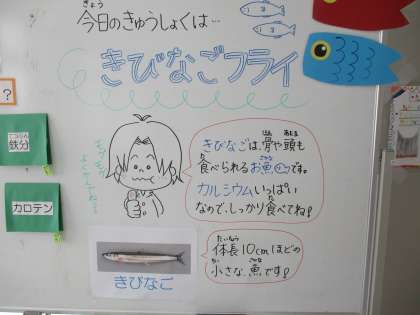 きょう
今日のきゅうしょくは…
きびなごフライ
?
てつぶん
鉄分
カロテン
きびなごは、骨や頭も
ほね
あたま
食べられるお魚です。
た
さかな
カルシウムいっぱい
なので、しっかり食べてね!
た
きびなご
たいちょう
体長10cmほどの
小さな魚です!
ちい
さかな